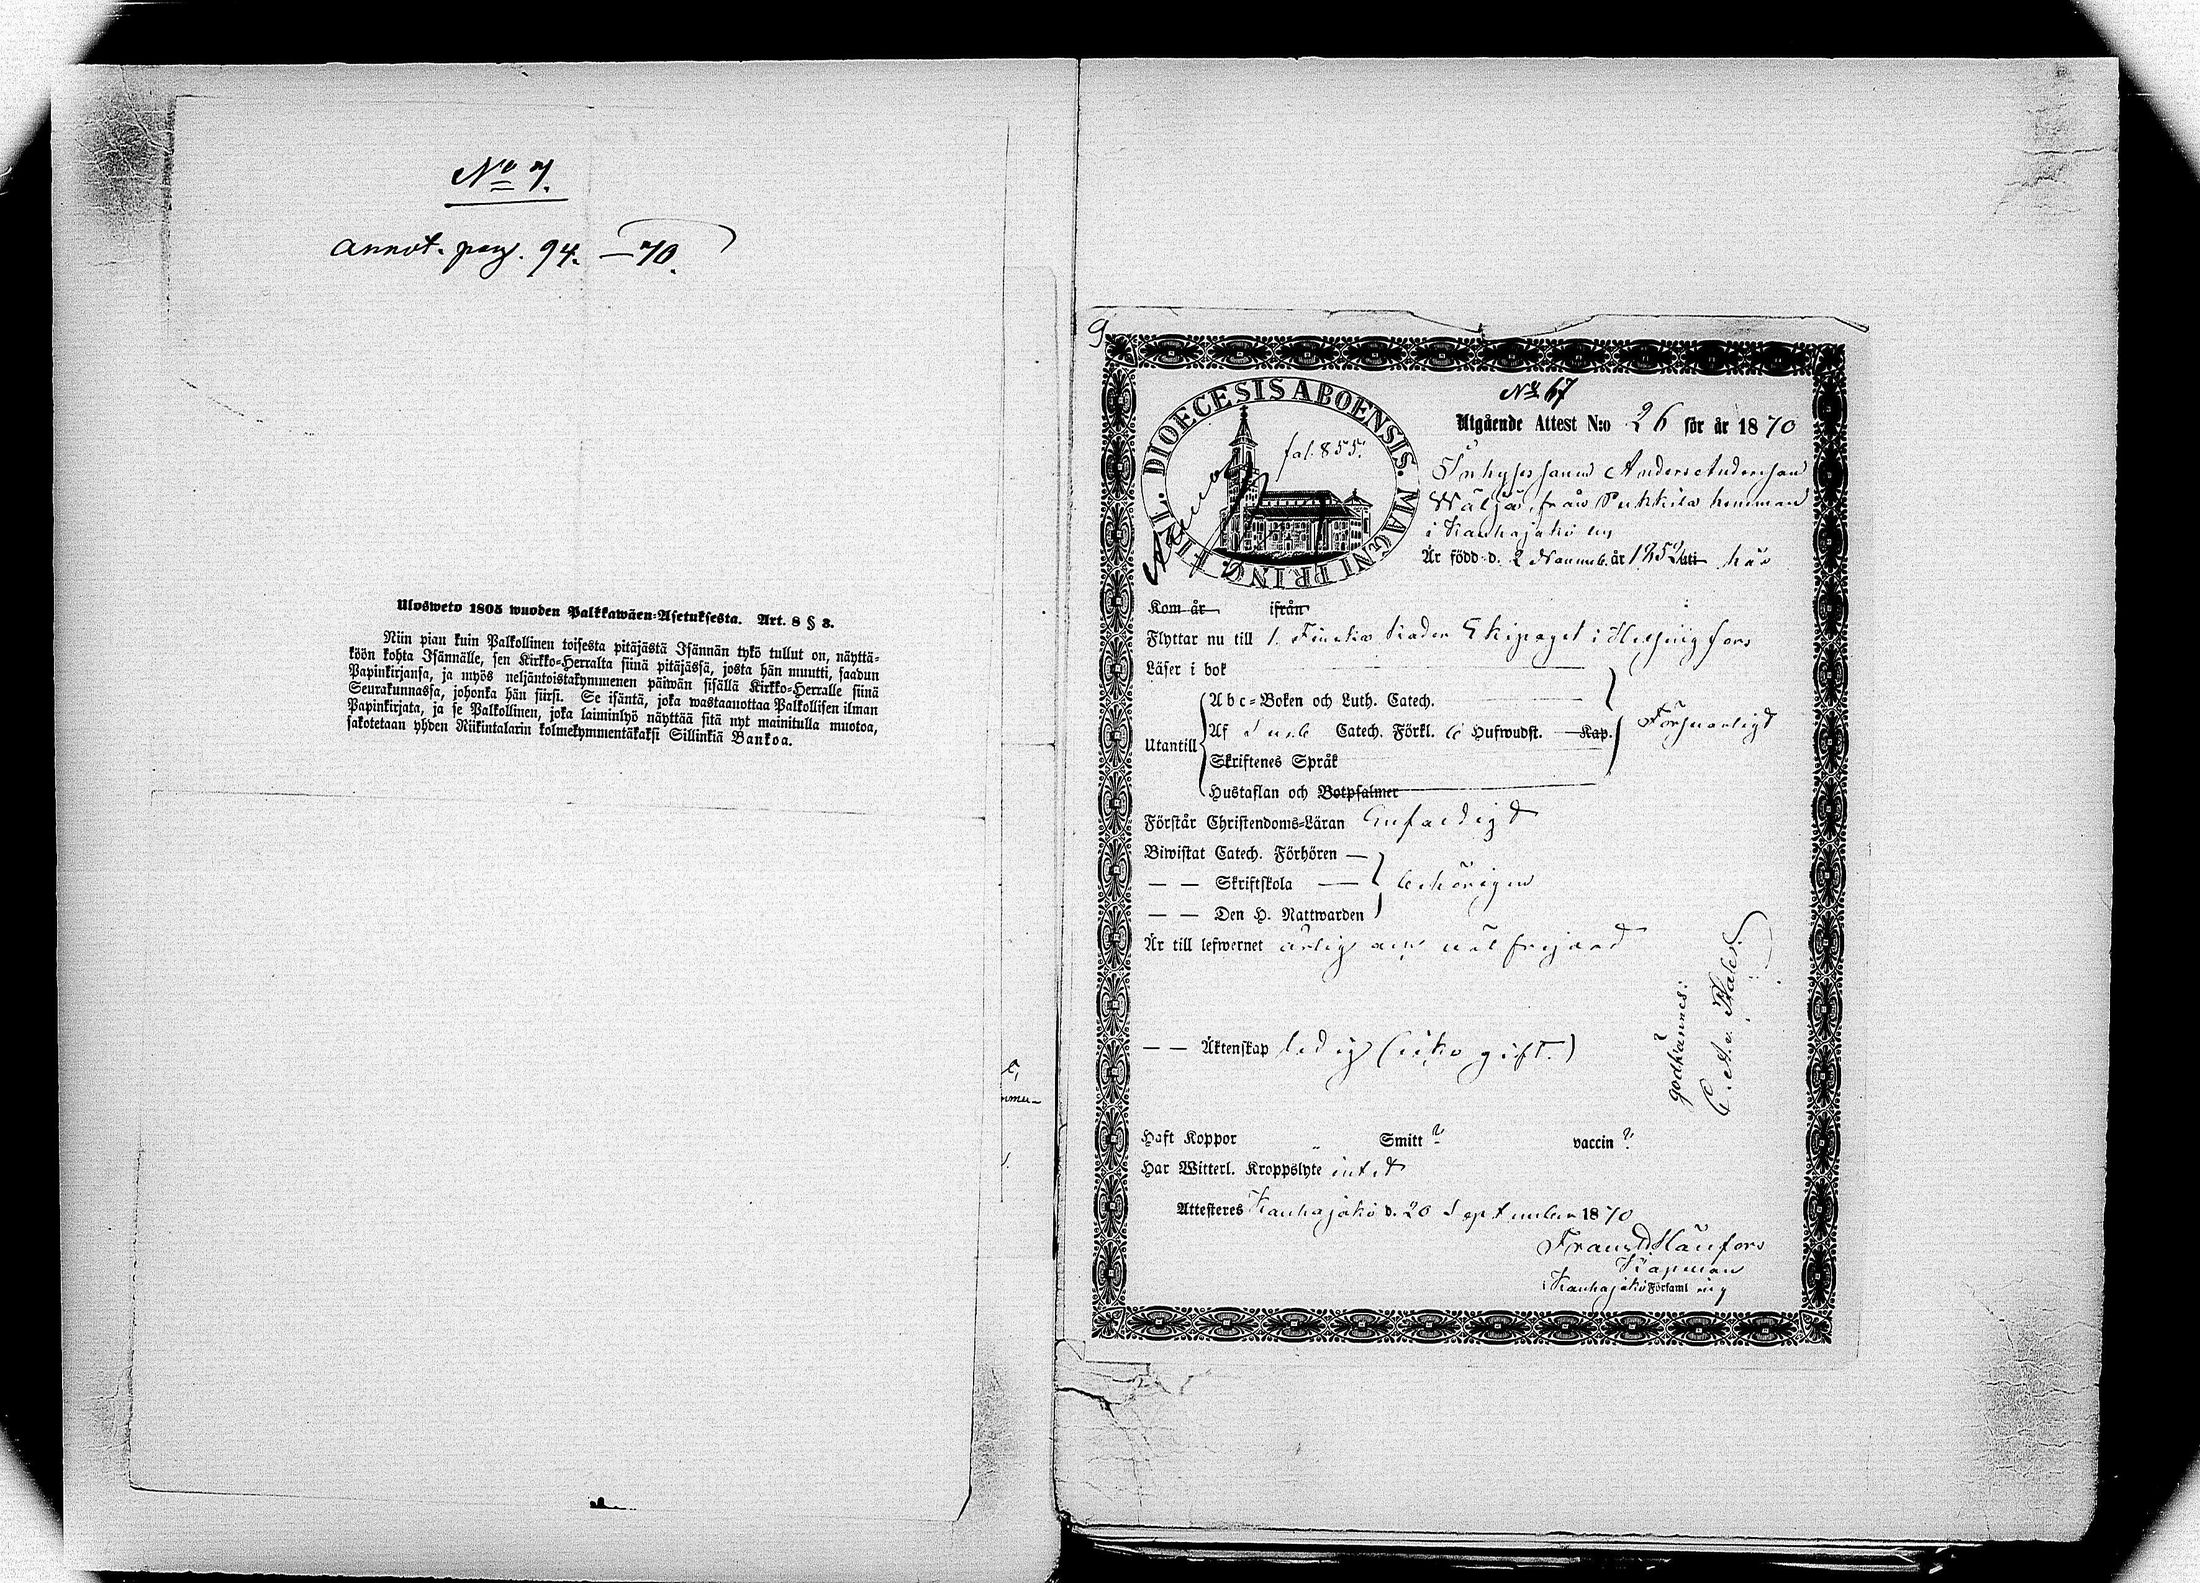 No 7.
annot. pag. 94. — 70.
Ulosweto 1805 wuoden Palkkawäen-Asetuksesta. Art. 8 § 3.
Niin pian kuin Palkollinen toisesta pitäjästä Isännän tykö tullut on, näyttä-
köön kohta Isännälle, sen Kirkko-Herralta siinä pitäjässä, josta hän muutti, saadun
Papinkirjansa, ja myös neljäntoistakymmenen päiwän sisällä Kirkko-Herralle siinä
Seurakunnassa, johonka hän siirsi. Se isäntä, joka wastaanottaa Palkollisen ilman
Papinkirjata, ja se Palkollinen, joka laiminlyö näyttää sitä nyt mainitulla muotoa,
sakotetaan yhden Riikintalarin kolmekymmentäkaksi Sillinkiä Bankoa.
9
No 67
DIOECESIS ABOENSIS. MAGNI PRINC. FINL.
fol. 855.
Utgående Attest N:o 26 för år 1870
Inhyses sonen Anders Andersson
Wälja, från Pukkila hemman
i Kauhajoki
Är född d. 2 Novemb. år 1852 uti här
Kom år ifrån
Flyttar nu till 1. Finska Kader Ekipaget i Helsingfors
Läser i bok
Abc-Boken och Luth. Catech.
Utantill Af Catech. Förkl. Hufwudst. Kap. Försvarligt
Skriftenes Språk
Hustaflan och Botpsalmer
Förstår Christendoms-Läran Enfaldigt
Biwistat Catech. Förhören —
— — Skriftskola — behörigen
— — Den H. Nattwarden
Är till lefwernet ärlig och väl frejdad
— — Äktenskap ledig (icke gift.)
godkännes:
Haft Koppor Smitt ? vaccin ?
Har Witterl. Kroppslyte intet
Attesteres Kauhajoki d. 20 September 1870
Frans Hänfors
Kapellan
Kauhajoki Församling